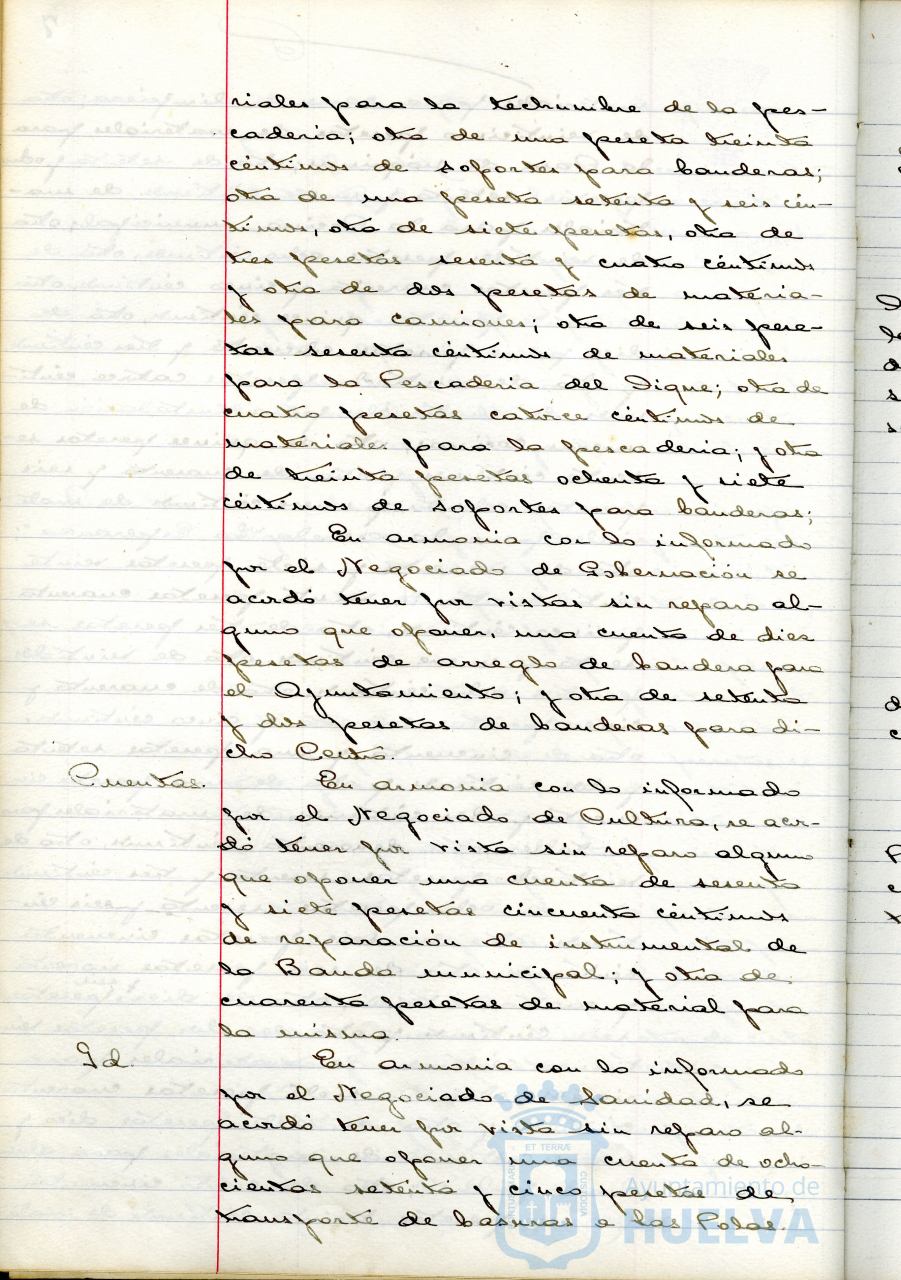 riales para la techumbre de la pes-
caderia; otra de una peseta treinta
céntimos de soportes para banderas;
otra de una peseta setenta y seis cén-
timos, otra de siete pesetas, otra de
tres pesetas sesenta y cuatro céntimos
y otra de dos pesetas de materia-
les para camiones; otra de seis pese-
tas sesenta céntimos de materiales
para la Pescaderia del Dique; otra de
cuatro pesetas catorce céntimos de
materiales para la pescaderia; y otra
de treinta pesetas ochenta y siete
céntimos de soportes para banderas;
En armonia con lo informado
por el Negociado de Gobernación se
acordó tener por vistas sin reparo al-
guno que oponer, una cuenta de diez
pesetas de arreglo de bandera para
el Ayuntamiento; y otra de setenta
y dos pesetas de banderas para di-
cho Centro.
Cuentas. En armonia con lo informado
por el Negociado de Cultura, se acor-
dó tener por vista sin reparo alguno
que oponer una cuenta de sesenta
y siete pesetas cincuenta céntimos
de reparación de instrumental de
la Banda municipal; y otra de
cuarenta pesetas de material para
la misma.
Id. En armonia con lo informado
por el Negociado de Sanidad, se
acordó tener por vista sin reparo al-
guno que oponer una cuenta de ocho-
cientas setenta y cinco pesetas de
transporte de basuras a las Polas.
ET TERRÆ
Ayuntamiento de
HUELVA